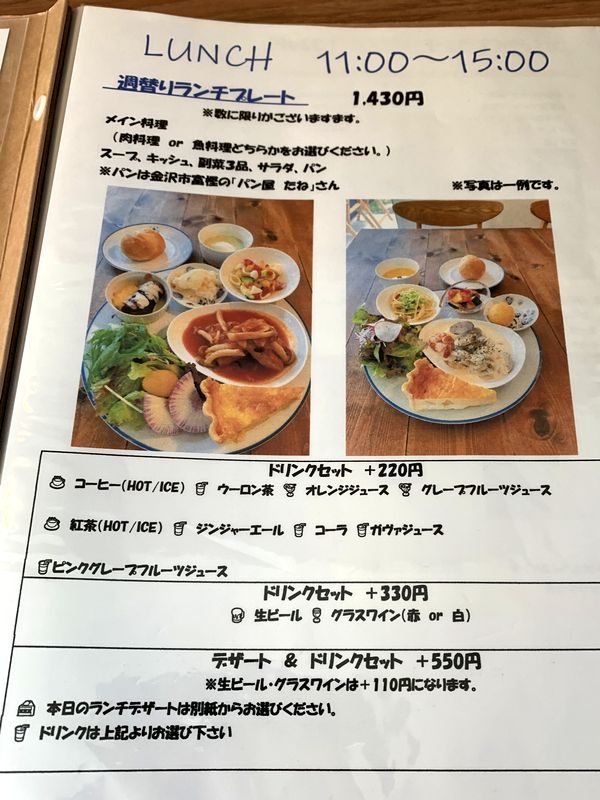 LUNCH 11:00～15:00
週替りランチプレート 1,430円
※数に限りがございますます。
メイン料理
（肉料理 or 魚料理どちらかをお選びください。）
スープ、キッシュ、副菜3品、サラダ、パン
※パンは金沢市富樫の「パン屋 たね」さん ※写真は一例です。
ドリンクセット +220円
コーヒー(HOT/ICE) ウーロン茶 オレンジジュース グレープフルーツジュース
紅茶(HOT/ICE) ジンジャーエール コーラ ガヴァジュース
ピンクグレープフルーツジュース
ドリンクセット +330円
生ビール グラスワイン(赤 or 白)
デザート & ドリンクセット +550円
※生ビール・グラスワインは+110円になります。
本日のランチデザートは別紙からお選びください。
ドリンクは上記よりお選び下さい